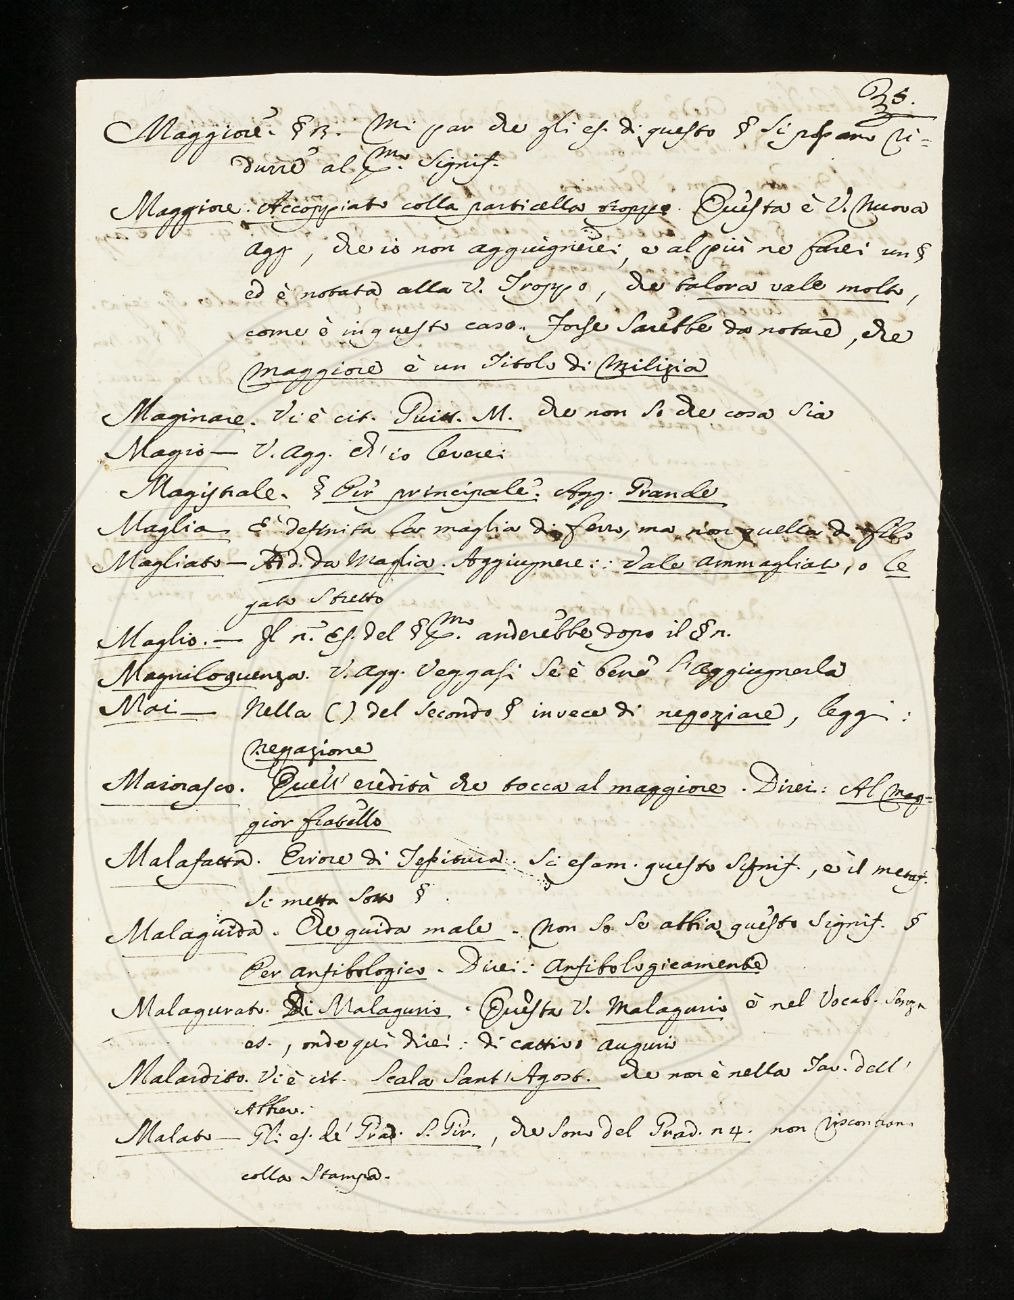 35.
Maggiore. § 12. Mi par che gli es. di questo § si possano ri=
durre al pmo. Signif.
Maggiore. Accoppiato colla particella troppo. Questa è V. Nuova
agg, che io non aggiugnerei, e al più ne farei un §
ed è notata alla V. Troppo, che talora vale molto,
come è in questo caso. Forse sarebbe da notare, che
maggiore è un Titolo di Milizia
Maginare. Vi è cit. Guitt. M. che non so che cosa sia
Magio — V. agg. ch' io leverei
Magistrale. § Per principale. Agg. Grande
Maglia E' definita la maglia di ferro, ma non quella di
Magliato — Ad. da Maglia. Aggiugnere: Vale ammagliato, o le
gato stretto
Maglio. — Il n. Es. del § pmo. anderebbe dopo il § n.
Magniloquenza. V. agg. Veggasi se è bene l'aggiugnerla
Mai — Nella () del secondo § invece di negoziare, leggi:
negazione
Maiorasco. Quell' eredità che tocca al maggiore. Direi: Al Mag=
gior fratello
Malafatta. Errore di Tessitura. Si esam. questo signif., e il metaf.
Si metta sotto §.
Malaguida. Che guida male. Non so se abbia questo signif. §
Per anfibologico. Direi: Anfibologicamente
Malagurato. Di Malagurio. Questa V. Malagurio è nel Vocab. senza
es., onde qui direi: di cattivo augurio
Malardito. Vi è cit. Scala Sant' Agost. che non è nella Tav. dell'
Abbrev.
Malato — Gli es. de' Grad. S. Gir., che sono del Grad. n 4. non riscontrani
colla Stampa.